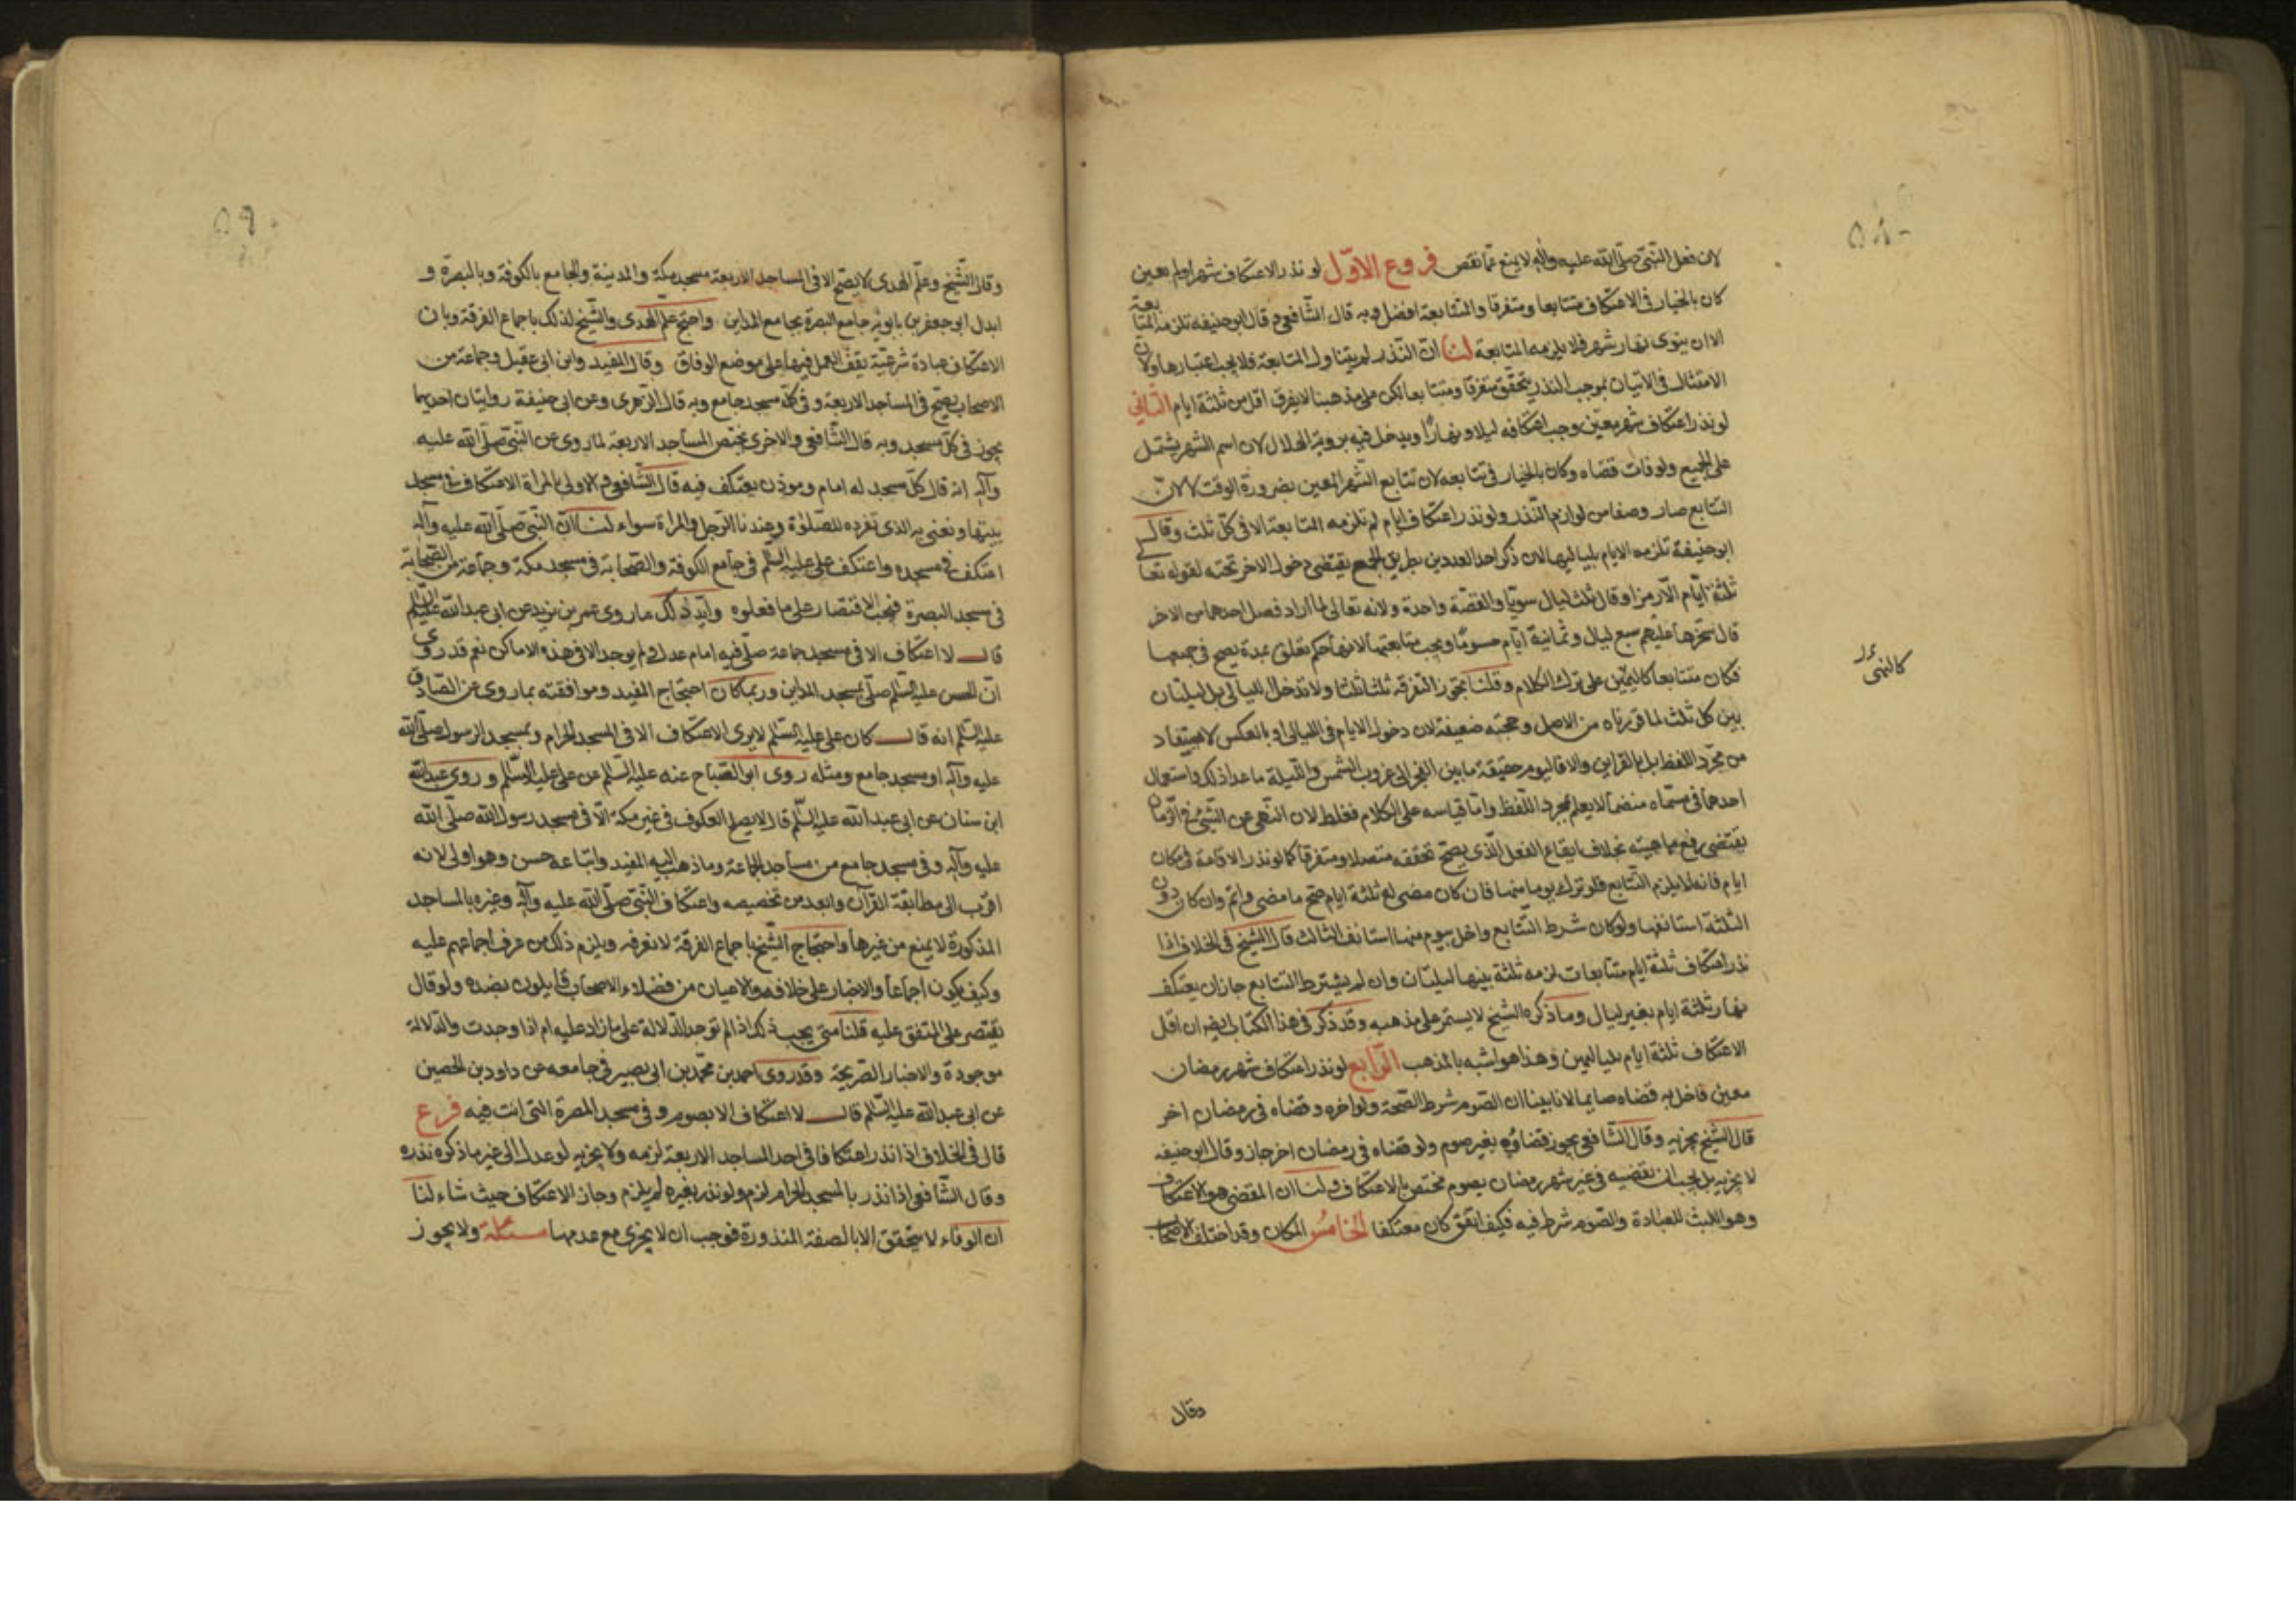 لان فعل النبي صلى الله عليه وآله لا يمنع مما نقص فروع الاول لو نذر الاعتكاف شهرا ولم يعين
كان بالخيار في الاعتكاف متتابعا ومتفرقا والمتتابعة افضل وبه قال الشافعي وقال ابو حنيفه تلزمه المتابعة
الا ان ينوي نهار شهر فلا يلزمه المتابعة لنا ان النذر لم يتناول المتابعة فلا يجب اعتبارها ولان
الامتثال في الاتيان بموجب النذر يتحقق متفرقا ومتتابعا لكن على مذهبنا لا يفرق اقل من ثلثة ايام الثاني
لو نذر اعتكاف شهر معين وجب اعتكافه ليلا ونهارا ويدخل فيه برؤية الهلال لان اسم الشهر يشتمل
على الجميع ولو فات قضاه وكان بالخيار في تتابعه لان تتابع الشهر المعين بضرورة الوقت لا لان
التتابع صار وصفا من لوازم النذر ولو نذر اعتكاف ايام لم تلزمه المتابعة الا في كل ثلث وقال
ابو حنيفة تلزمه الايام بلياليها لان ذكر احد العددين بطريق الجمع يقتضي دخول الاخر تحته لقوله تعالى
ثلثة ايام الا رمزا وقال ثلث ليال سويا والقصة واحدة ولانه تعالى لما اراد فصل احدهما من الاخر
قال سخرها عليهم سبع ليال وثمانية ايام حسوما ويجب متابعتها لانها حكم تعلق بمدة يصح في جميعها
فكان متتابعا كاليمين على ترك الكلام وقلنا بجواز التفرقة ثلثا ثلثا ولا تدخل الليالي بل ليلتان
بين كل ثلث لما قررناه من الاصل وحجته ضعيفة لان دخول الايام في الليالي او بالعكس لا يستفاد
من مجرد اللفظ بل بالقراين والا فاليوم حقيقة ما بين الفجر الى غروب الشمس والليلة ما عدا ذلك واستعمال
احدهما في مسماه منضما لا يعلم بمجرد اللفظ واما قياسه على الكلام فغلط لان النهي عن الشيء في الزمان
يقتضي رفع ماهيته بخلاف ايقاع الفعل الذي يصح تحققه متصلا ومتفرقا كما لو نذر الاقامة في مكان
ايام فانه لا يلزم التتابع فلو ترك يوما منها فان كان مضى له ثلثة ايام صح ما مضى واتم وان كان دون
الثلثة استانفها ولو كان شرط التتابع واخل بيوم منها استانف الثالث قال الشيخ في الخلاف اذا
نذر اعتكاف ثلثة ايام متتابعات لزمه ثلثة بينها ليلتان وان لم يشترط التتابع جاز ان يعتكف
نهار ثلثة ايام بغير ليال وما ذكره الشيخ لا يستمر على مذهبه وقد ذكر في هذا الكتاب ايضا ان اقل
الاعتكاف ثلثة ايام بليالين وهذا هو اشبه بالمذهب الرابع لو نذر اعتكاف شهر رمضان
معين فاخل به قضاه صايما لانا بينا ان الصوم شرط الصحة ولو اخره وقضاه في رمضان اخر
قال الشيخ يجزيه وقال الشافعي يجوز قضاؤه بغير صوم ولو قضاه في رمضان اخر جاز وقال ابو حنيفه
لا يجزيه بل يجب ان يقضيه في غير شهر رمضان بصوم مختص بالاعتكاف ولنا ان المقضي هو الاعتكاف
وهو اللبث للعبادة والصوم شرط فيه فكيف اتفق كان معتكفا الخامس المكان وقد اختلف الاصحاب
وقال
٥٨٠
وقال الشيخ وعلم الهدى لا يصح الا في المساجد الاربعة مسجد مكة والمدينة والجامع بالكوفة وبالبصرة و
ابدل ابو جعفر بن بابويه جامع البصرة بجامع المداين واحتج علم الهدى والشيخ لذلك باجماع الفرقة وبان
الاعتكاف عبادة شرعية يقف العمل فيها على موضع الوفاق وقال المفيد وابن ابي عقيل وجماعة من
الاصحاب يصح في المساجد الاربعة وفي كل مسجد جامع وبه قال الزهري وعن ابي حنيفة روايتان احديهما
يجوز في كل مسجد وبه قال الشافعي والاخرى يختص المساجد الاربعة لما روى عن النبي صلى الله عليه
وآله انه قال كل مسجد له امام وموذن يعتكف فيه قال الشافعي والاولى بالمراة الاعتكاف في مسجد
بيتها ونعني به الذي تفرده للصلوة وعندنا الرجل والمراة سواء لنا ان النبي صلى الله عليه وآله
اعتكف في مسجده واعتكف علي عليه السلم في جامع الكوفة والصحابة في مسجد مكة وجماعة من الصحابة
في مسجد البصرة فيجب الاقتصار على ما فعلوه وايد ذلك ما روى عمر بن يزيد عن ابي عبد الله عليه السلم
قال لا اعتكاف الا في مسجد جماعة صلى فيه امام عدل ولم يوجد الا في هذه الاماكن نعم قد روي
ان الحسن عليه السلم صلى بمسجد المداين وربما كان احتجاج المفيد وموافقته بما روى عن الصادق
عليه السلم انه قال كان علي عليه السلم لا يرى الاعتكاف الا في المسجد الحرام وبمسجد الرسول صلى الله
عليه وآله او مسجد جامع ومثله روى ابو الصباح عنه عليه السلم عن علي عليه السلم وروى عبد الله
ابن سنان عن ابي عبد الله عليه السلم قال لا يصلح العكوف في غير مكة الا في مسجد رسول الله صلى الله
عليه وآله وفي مسجد جامع من مساجد الجماعة وما ذهب اليه المفيد واتباعه حسن وهو اولى لانه
اقرب الى مطابقة القرآن وابعد من تخصيصه واعتكاف النبي صلى الله عليه وآله وغيره بالمساجد
المذكورة لا يمنع من غيرها واحتجاج الشيخ باجماع الفرقة لا نعرفه ويلزم ذلك من عرف اجماعهم عليه
وكيف يكون اجماعا والاخبار على خلافه والاعيان من فضلاء الاصحاب قايلون بضده ولو قال
يقتصر على المتفق عليه قلنا متى يجب ذلك اذا لم توجد الدلالة على ما زاد عليه ام اذا وجدت والدلالة
موجودة والاخبار الصريحة وقد روى احمد بن محمد بن ابي نصر في جامعه عن داود بن الحصين
عن ابي عبد الله عليه السلم قال لا اعتكاف الا بصوم وفي مسجد المصر التي انت فيه فرع
قال في الخلاف اذا نذر اعتكافا في احد المساجد الاربعة لزمه ولا يجزيه لو عدل الى غير ما ذكره نذره
وقال الشافعي اذا نذر بالمسجد الحرام لزم ولو نذر بغيره لم يلزم وجاز الاعتكاف حيث شاء لنا
ان الوفاء لا يتحقق الا بالصفة المنذورة فوجب ان لا يجزي مع عدمها مسئلة ولا يجوز
٥٩٠